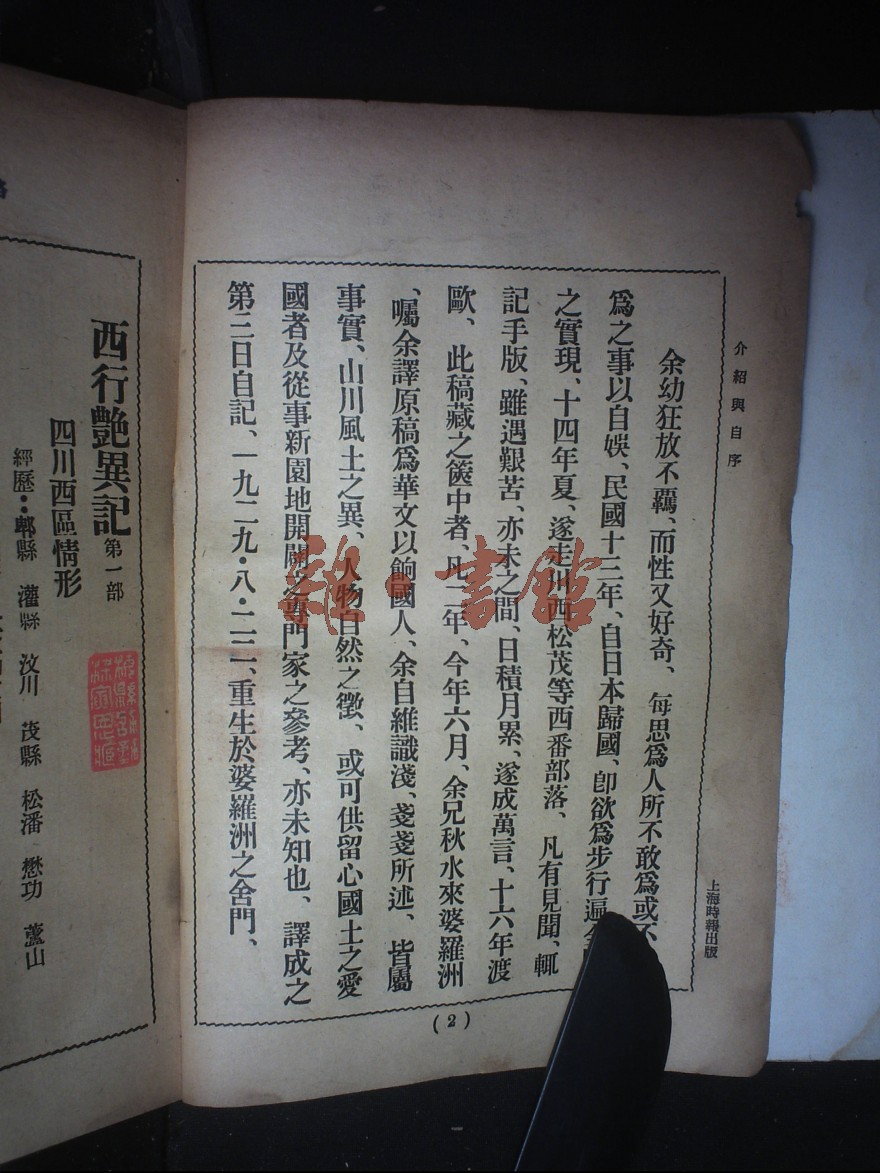 介紹與自序
上海時報出版
余幼狂放不羈、而性又好奇、每思爲人所不敢爲或不
爲之事以自娛、民國十三年、自日本歸國、卽欲爲步行遍
之實現、十四年夏、遂走川西松茂等西番部落、凡有見聞、輒
記手版、雖遇艱苦、亦未之間、日積月累、遂成萬言、十六年渡
歐、此稿藏之篋中者、凡二年、今年六月、余兄秋水來婆羅洲
、囑余譯原稿爲華文以餉國人、余自維識淺、戔戔所述、皆屬
事實、山川風土之異、人物自然之徵、或可供留心國土之愛
國者及從事新園地開闢之專門家之參考、亦未知也、譯成之
第三日自記、一九二九·八·二二、重生於婆羅洲之舍門、
(2)
西行艷異記 第一部
四川西區情形
經歷：郫縣 灌縣 汶川 茂縣 松潘 懋功 蘆山
雜·書館